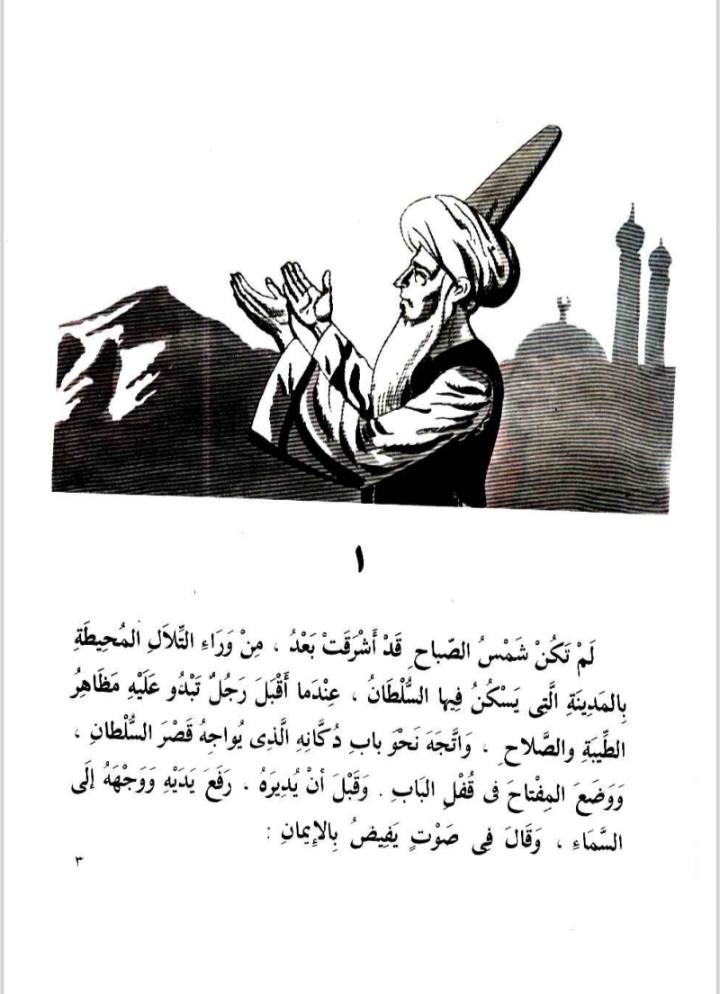 ١
لَمْ تَكُنْ شَمْسُ الصّباحِ قَدْ أَشْرَقَتْ بَعْدُ ، مِنْ وَرَاءِ التِّلَالِ المُحِيطَةِ
بِالمَدِينَةِ الَّتِى يَسْكُنُ فِيها السُّلْطَانُ ، عِنْدَما أَقْبَلَ رَجُلٌ تَبْدُو عَلَيْهِ مَظَاهِرُ
الطِّيبَةِ والصَّلاحِ ، وَاتَّجَهَ نَحْوَ بابِ دُكَّانِهِ الَّذِى يُواجِهُ قَصْرَ السُّلْطانِ ،
وَوَضَعَ المِفْتاحَ فى قُفْلِ البَابِ . وَقَبْلَ أنْ يُدِيرَهُ ، رَفَعَ يَدَيْهِ وَوَجْهَهُ إلَى
السَّمَاءِ ، وَقَالَ فِى صَوْتٍ يَفِيضُ بِالإيمانِ :
٣